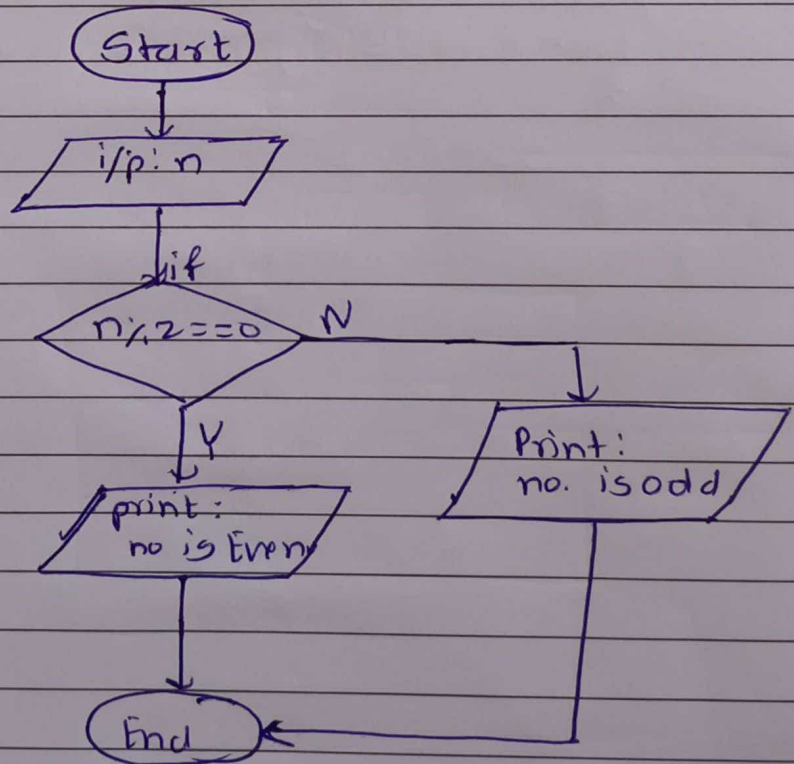 Start
i/p: n
if
n%2==0
N
Y
Print:
no. is odd
print:
no is Even
End